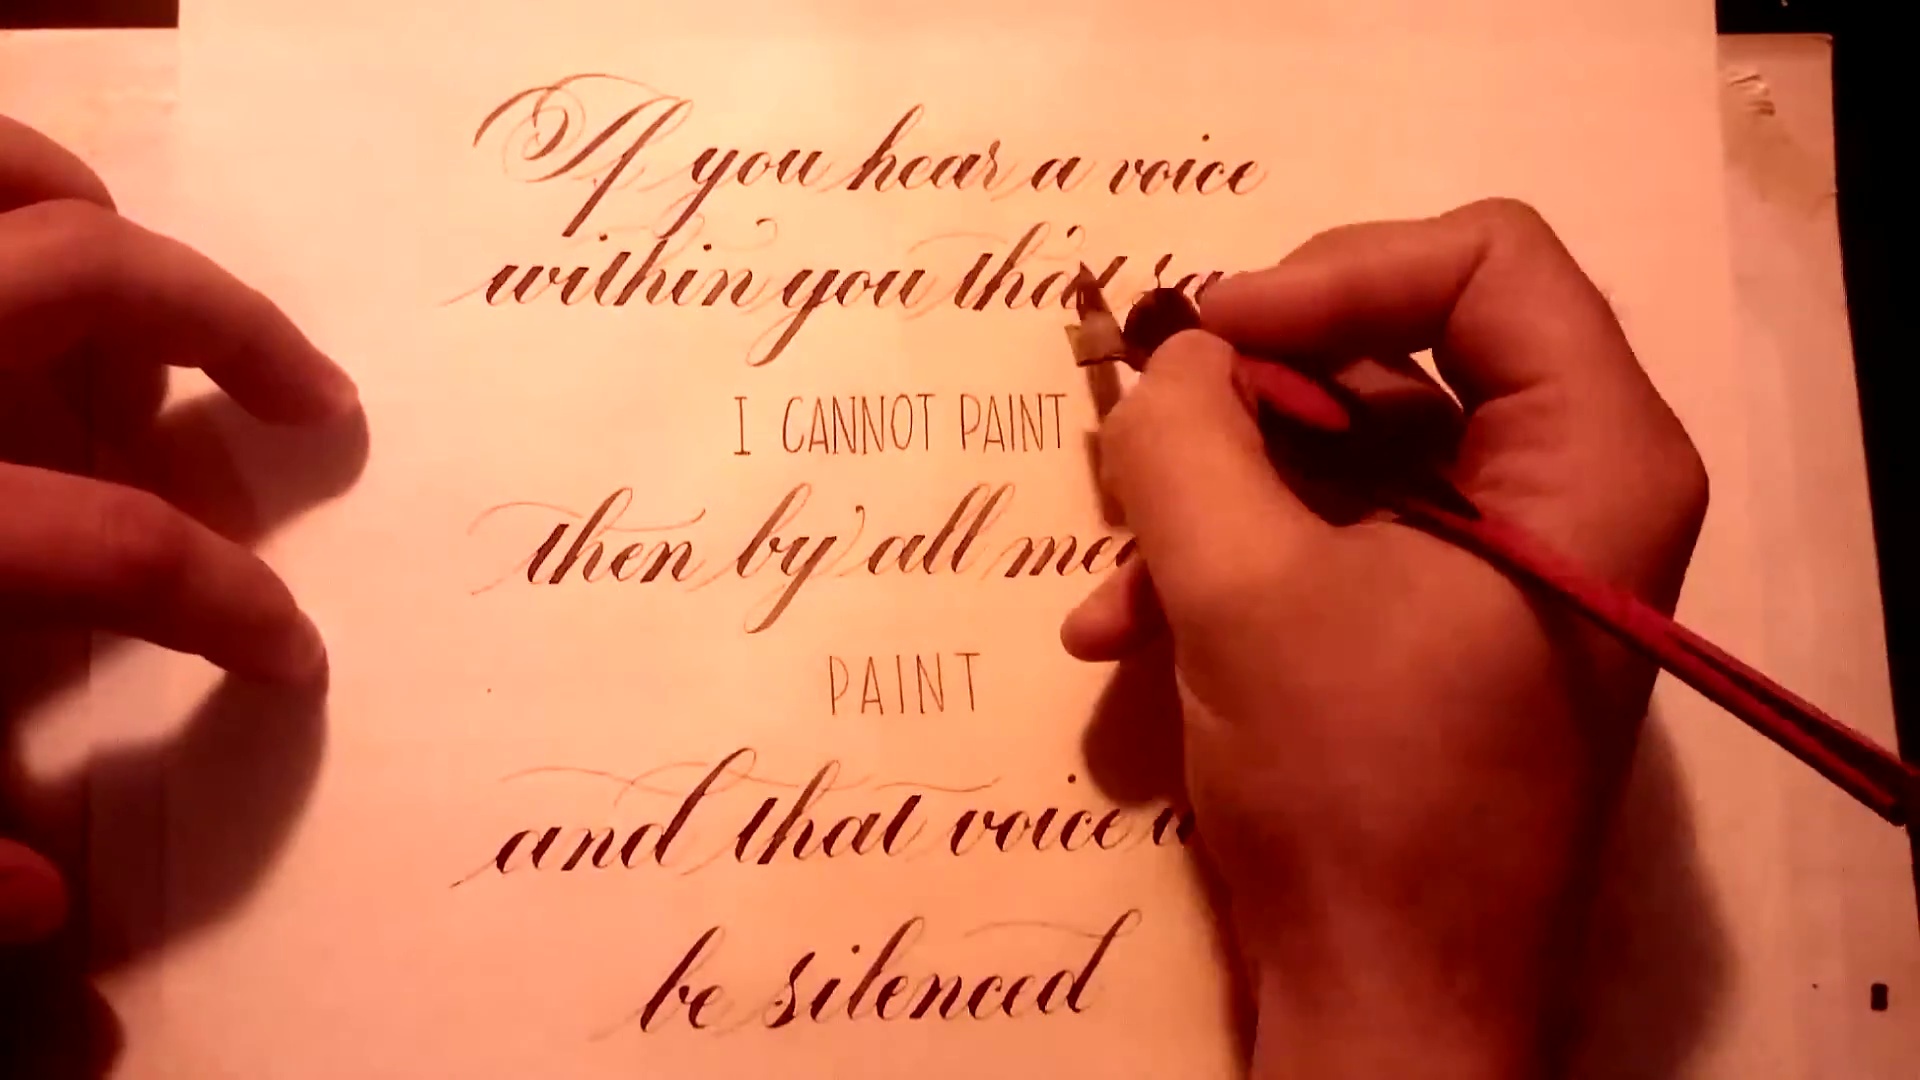 If you hear a voice
within you that
I CANNOT PAINT
then by all
PAINT
and that voice
be silenced